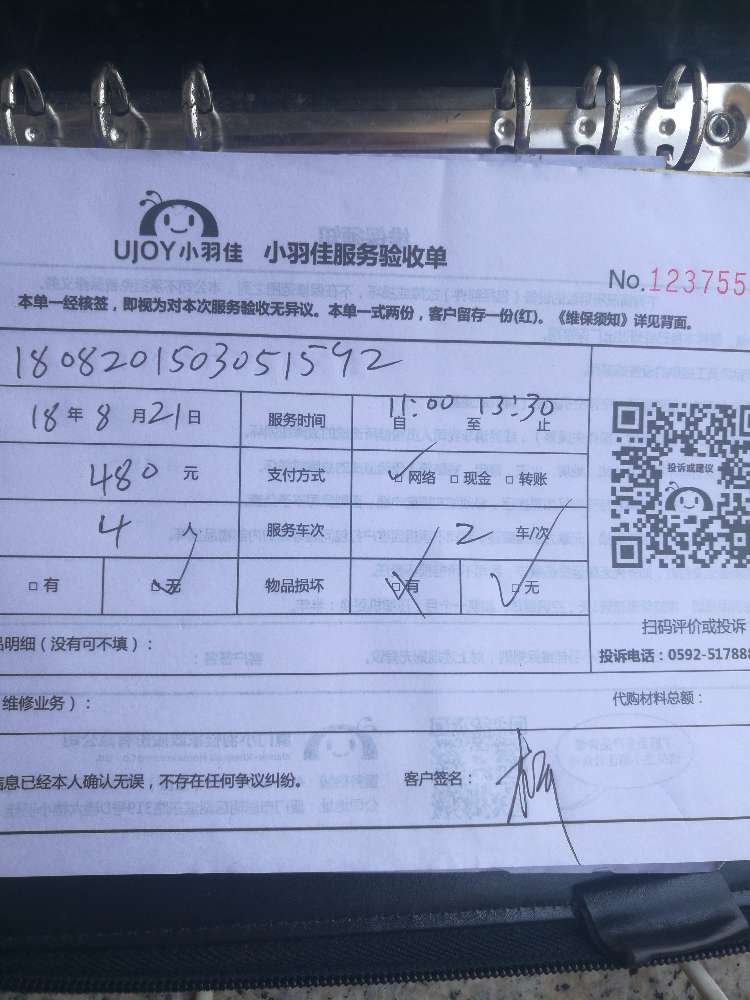 UJOY小羽佳 小羽佳服务验收单
No.123755
本单一经核签，即视为对本次服务验收无异议。本单一式两份，客户留存一份(红)。《维保须知》详见背面。
1808201503051592
18年8月21日 服务时间 11:00自 至 13:30止
480元 支付方式 网络 现金 转账
4人 服务车次 2车/次
有 无 物品损坏 有 无
投诉或建议
扫码评价或投诉
品明细（没有可不填）：
投诉电话：0592-517888
维修业务）：
代购材料总额：
信息已经本人确认无误，不存在任何争议纠纷。 客户签名：